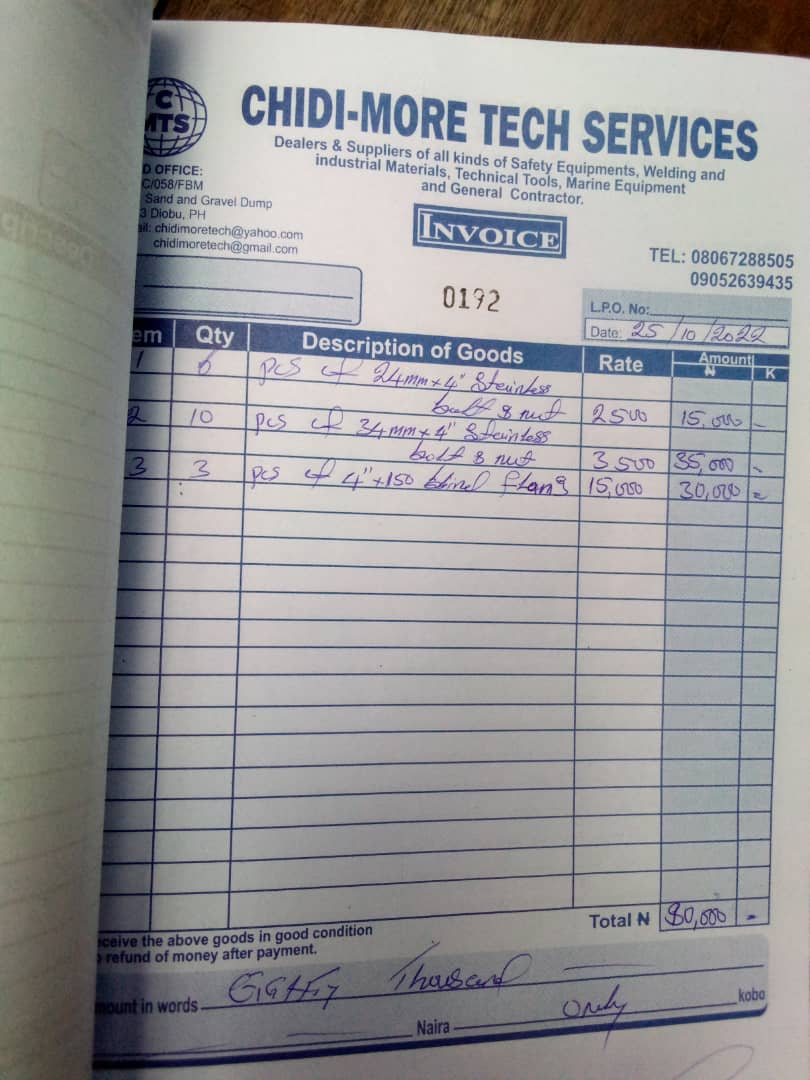 C
MTS
CHIDI-MORE TECH SERVICES
Dealers & Suppliers of all kinds of Safety Equipments, Welding and
industrial Materials, Technical Tools, Marine Equipment
and General Contractor.
D OFFICE:
C/058/FBM
Sand and Gravel Dump
3 Diobu, PH
ail: chidimoretech@yahoo.com
chidimoretech@gmail.com
INVOICE
TEL: 08067288505
09052639435
0192
L.P.O. No:
Date: 25/10/2022
em Qty Description of Goods Rate Amount
₦ K
1 6 pcs of 24mm x 4" Stainless
bolt & nut 2500 15,000 -
2 10 pcs of 34mm x 4" Stainless
bolt & nut 3500 35,000 -
3 3 pcs of 4" x 150 blind flang 15,000 30,000 =
Total ₦ 80,000 -
eceive the above goods in good condition
refund of money after payment.
mount in words Eighty Thousand
Naira only kobo